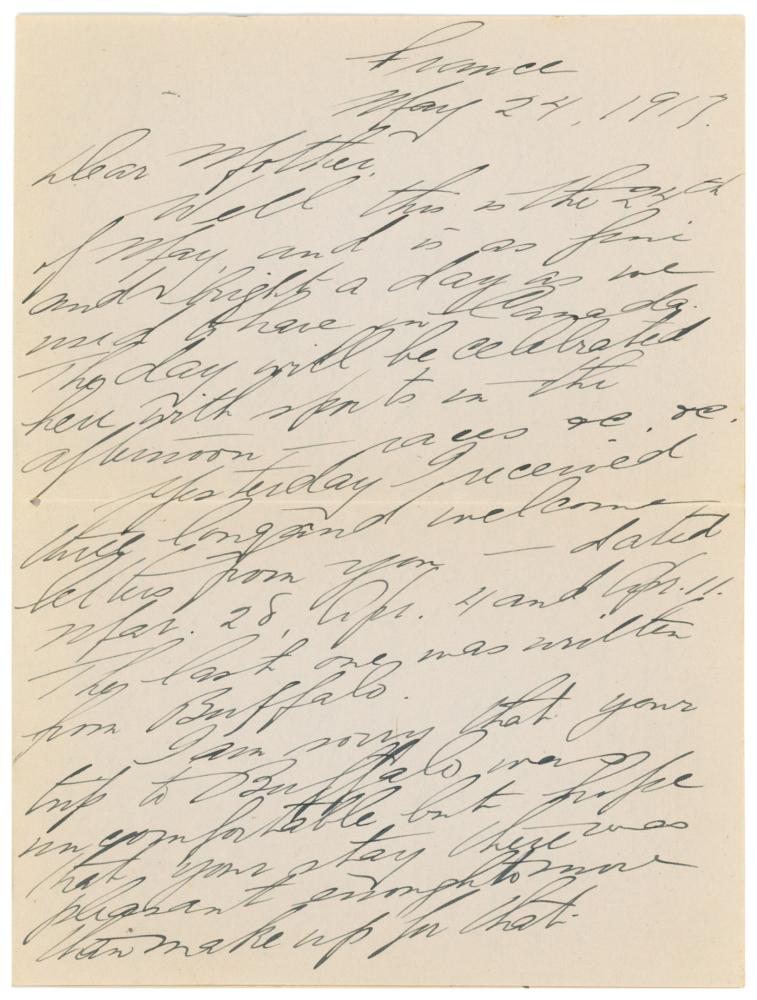 France
May 24, 1917.
Dear Mother,
Well this is the 24th
of May, and is as fine
and bright a day as we
used to have in Canada.
The day will be celebrated
here with sports in the
afternoon — races &c. &c.
Yesterday I received
three long and welcome
letters from you — dated
Mar. 28, Apr. 4 and Apr. 11.
The last one was written
from Buffalo.
I am sorry that your
trip to Buffalo was
uncomfortable but hope
that your stay there was
pleasant enough to more
than make up for that.